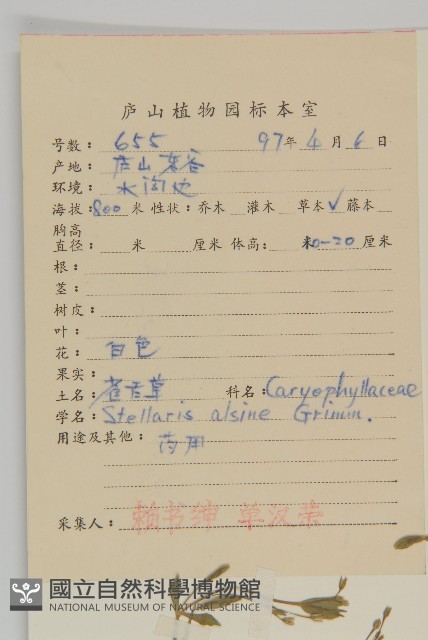 庐山植物园标本室
号数：655 97年4月6日
产地：庐山
环境：水沟边
海拔：800米 性状：乔木 灌木 草本✓藤本
胸高
直径： 米 厘米 体高： 米 10-20厘米
根：
茎：
树皮：
叶：
花：白色
果实：
土名：雀舌草 科名：Caryophyllaceae
学名：Stellaris alsine Grimm.
用途及其他：药用
采集人：赖书绅 单汉荣
國立自然科學博物館
NATIONAL MUSEUM OF NATURAL SCIENCE